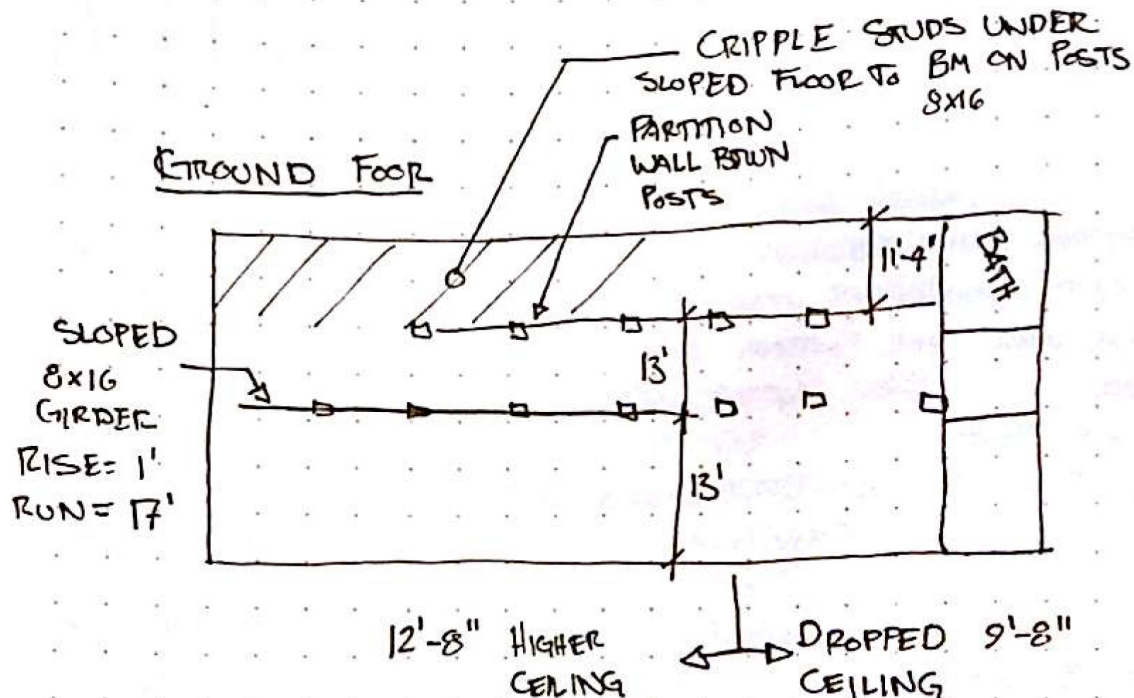 CRIPPLE STUDS UNDER
SLOPED FLOOR TO BM ON POSTS
8X16
PARTITION
WALL BTWN
POSTS
GROUND FOOR
11'-4"
BATH
SLOPED
8X16
GIRDER
RISE= 1'
RUN= 17'
13'
13'
12'-8" HIGHER
CEILING
DROPPED 9'-8"
CEILING